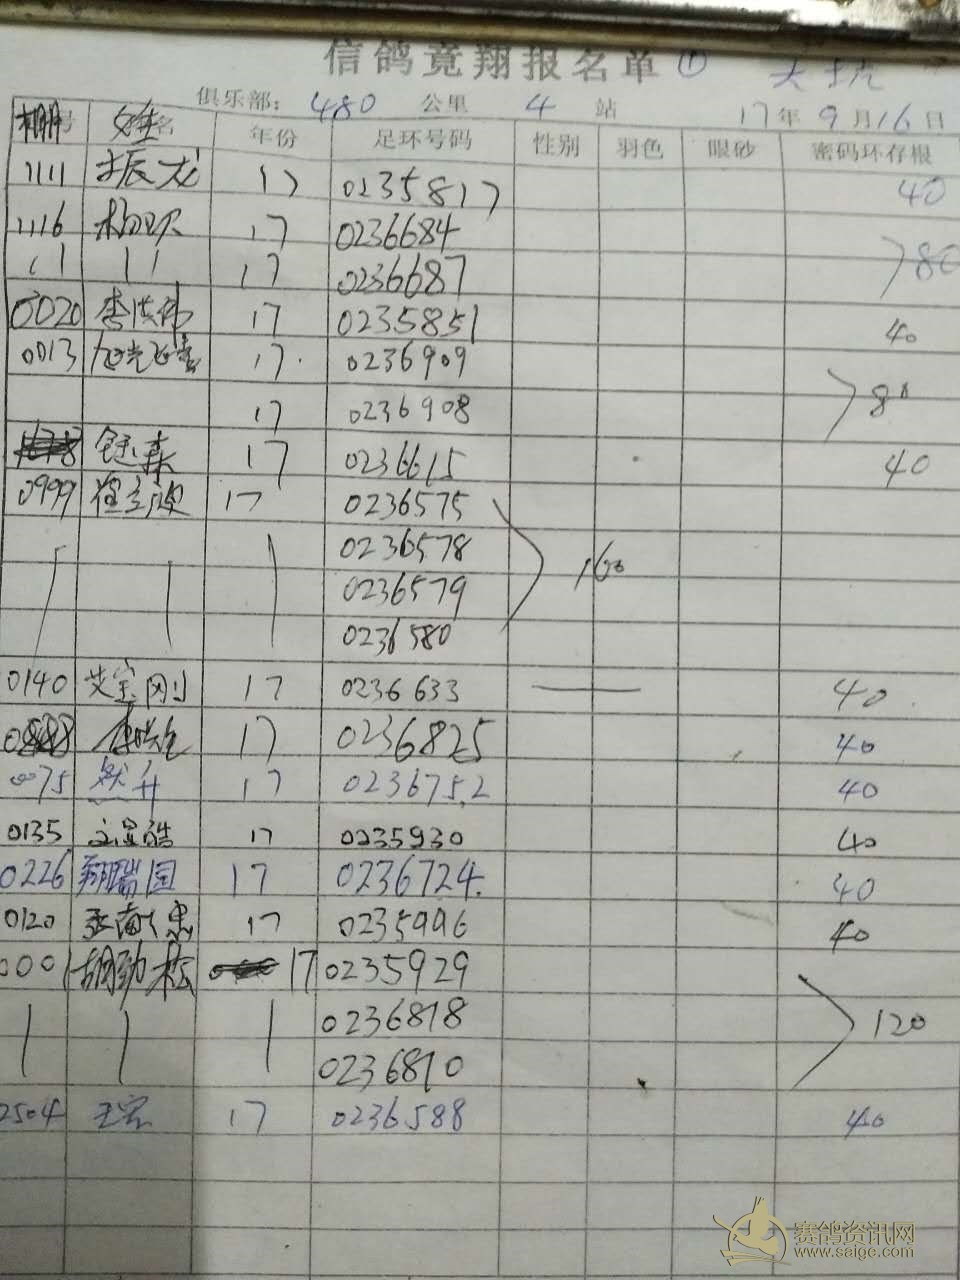 信鸽竞翔报名单 ① 大坑
俱乐部: 480 公里 4 站 17年9月16日
棚号 姓名 年份 足环号码 性别 羽色 眼砂 密码环存根
1111 振龙 17 0235817 40
1116 17 0236684 80
11 11 17 0236687
0020 李洪伟 17 0235851 40
0013 旭光飞 17. 0236909 80
17 0236908
森 17 0236615 40
0999 17 0236575 160
0236578
0236579
0236580
0140 艾宝刚 17 0236633 — 40
17 0236825 40
0075 升 17 0236752 40
0135 文显皓 17 0235930 40
0226 翔瑞国 17 0236724. 40
0120 17 0235996 40
0001 胡劲松 17 0235929 120
0236818
0236810
2504 王宏 17 0236588 40
赛鸽资讯网
www.saigc.com